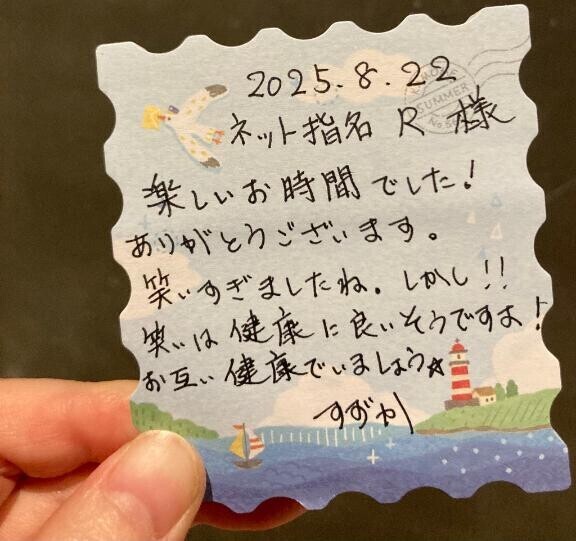 2025.8.22
ネット指名 R 様
楽しいお時間でした!
ありがとうございます。
笑いすぎましたね。しかし!!
笑いは健康に良いそうですよ!
お互い健康でいましょう☆
SUMMER